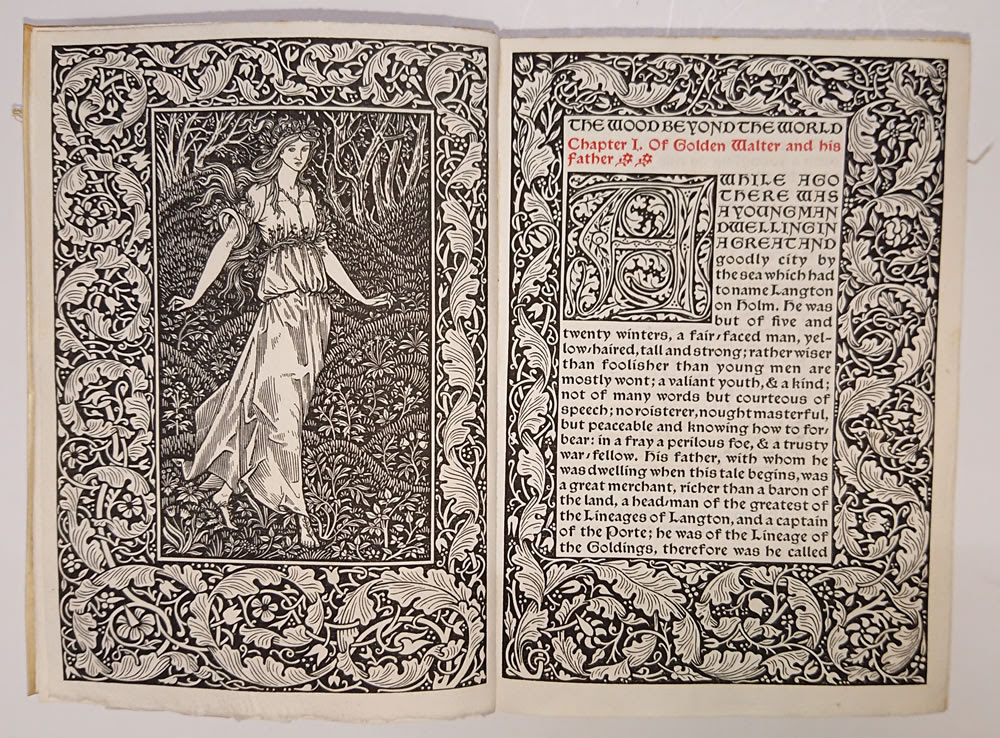 THE WOOD BEYOND THE WORLD
Chapter I. Of Golden Walter and his
father
A WHILE AGO
THERE WAS
A YOUNG MAN
DWELLING IN
A GREAT AND
goodly city by
the sea which had
to name Langton
on Holm. He was
but of five and
twenty winters, a fair-faced man, yel-
low-haired, tall and strong; rather wiser
than foolisher than young men are
mostly wont; a valiant youth, & a kind;
not of many words but courteous of
speech; no roisterer, nought masterful,
but peaceable and knowing how to for-
bear: in a fray a perilous foe, & a trusty
war-fellow. His father, with whom he
was dwelling when this tale begins, was
a great merchant, richer than a baron of
the land, a head-man of the greatest of
the Lineages of Langton, and a captain
of the Porte; he was of the Lineage of
the Goldings, therefore was he called